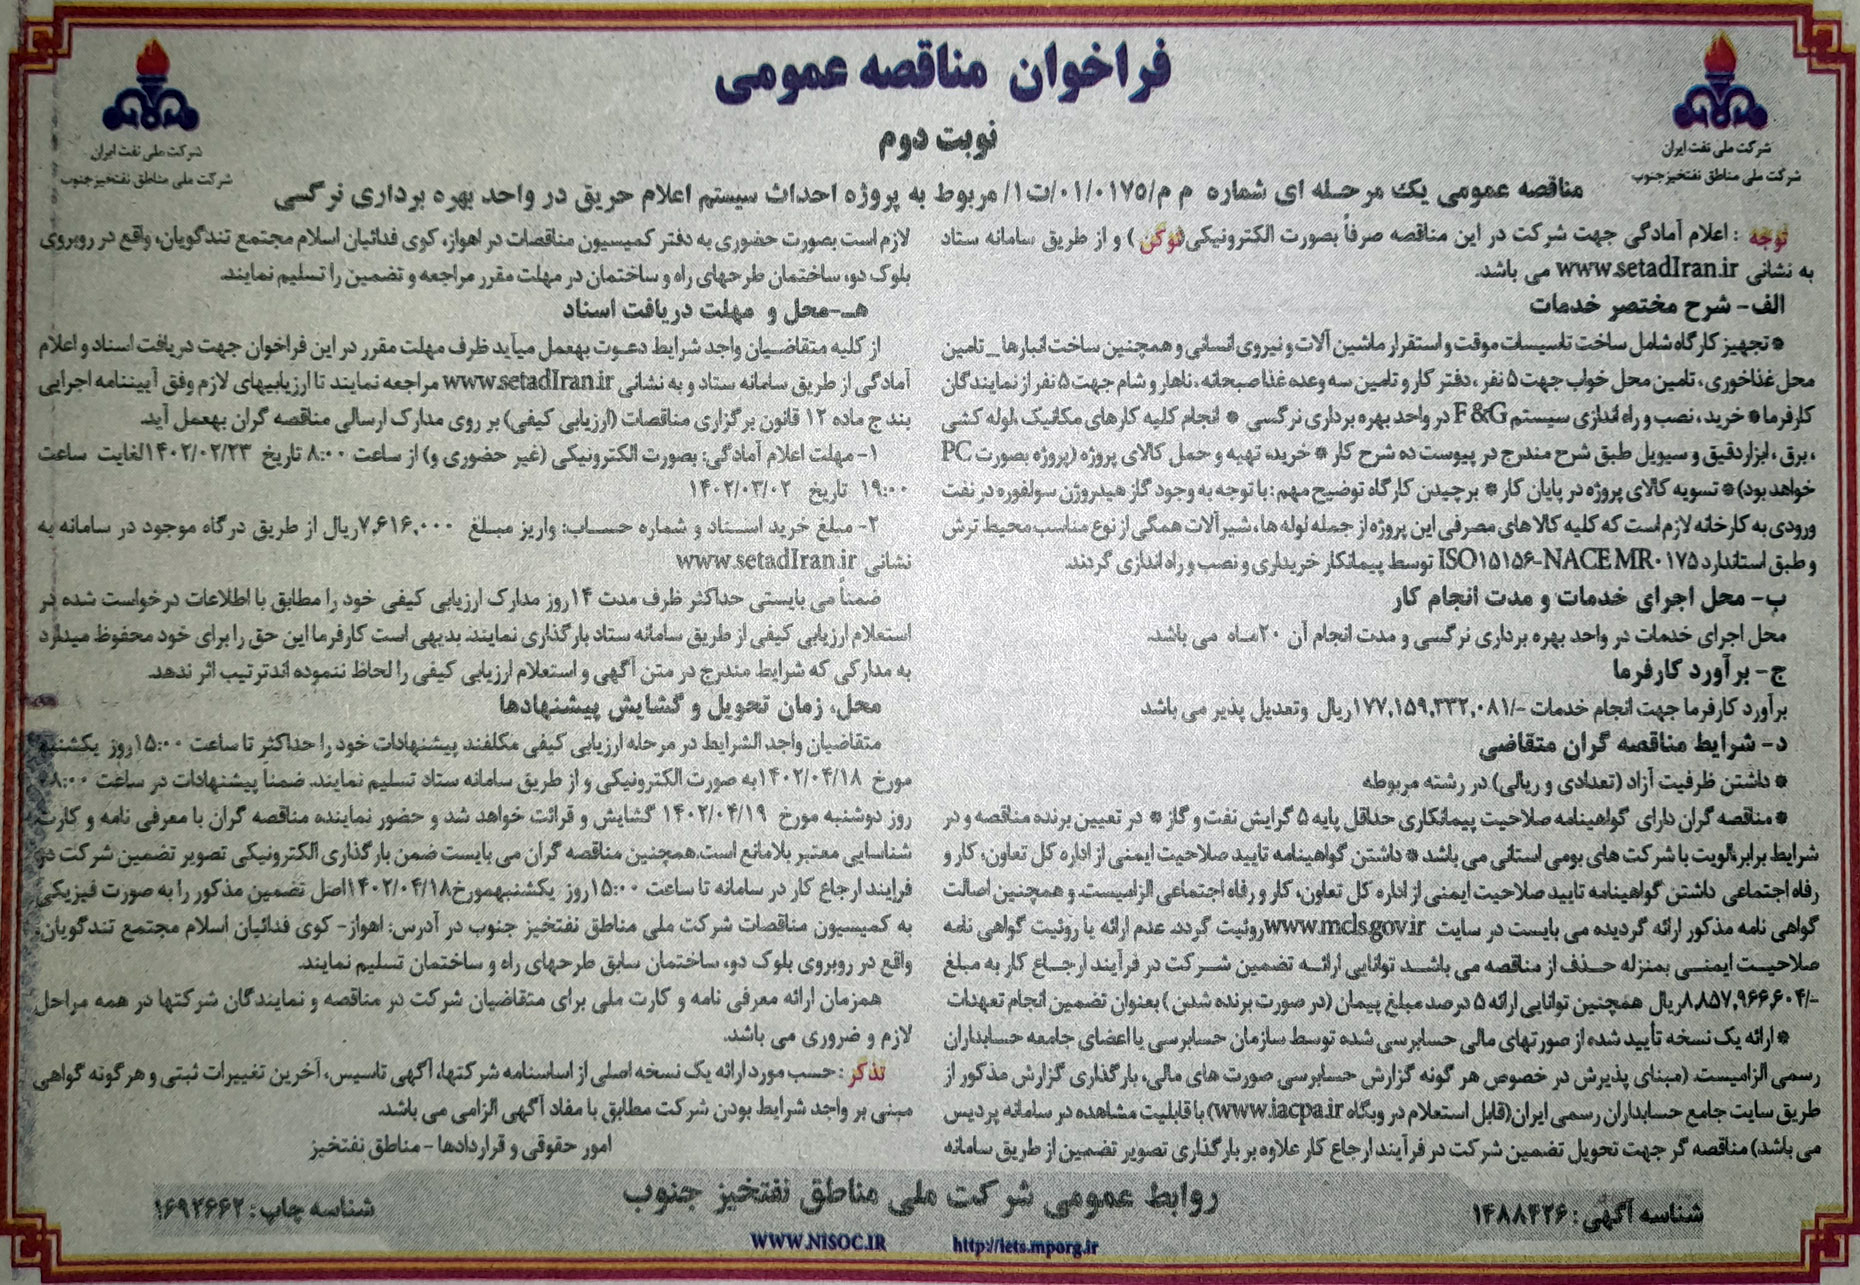 فراخوان مناقصه عمومی
نوبت دوم
شرکت ملی نفت ایران
شرکت ملی مناطق نفتخیز جنوب
شرکت ملی نفت ایران
شرکت ملی مناطق نفتخیز جنوب
مناقصه عمومی یک مرحله ای شماره م م/۰۱/۰۱۷۵/ت۱/ مربوط به پروژه احداث سیستم اعلام حریق در واحد بهره برداری نرگسی
توجه : اعلام آمادگی جهت شرکت در این مناقصه صرفاً بصورت الکترونیکی(توکن ) و از طریق سامانه ستاد
به نشانی www.setadIran.ir می باشد.
الف- شرح مختصر خدمات
* تجهیز کارگاه شامل ساخت تاسیسات موقت و استقرار ماشین آلات و نیروی انسانی و همچنین ساخت انبارها_ تامین
محل غذاخوری، تامین محل خواب جهت ۵ نفر، دفتر کار و تامین سه وعده غذا صبحانه، ناهار و شام جهت ۵ نفر از نمایندگان
کارفرما * خرید، نصب و راه اندازی سیستم F&G در واحد بهره برداری نرگسی * انجام کلیه کارهای مکانیک، لوله کشی
، برق، ابزاردقیق و سیویل طبق شرح مندرج در پیوست ده شرح کار * خرید، تهیه و حمل کالای پروژه (پروژه بصورت PC
خواهد بود)* تسویه کالای پروژه در پایان کار * برچیدن کارگاه توضیح مهم: با توجه به وجود گاز هیدروژن سولفوره در نفت
ورودی به کارخانه لازم است که کلیه کالاهای مصرفی این پروژه از جمله لوله ها، شیرآلات همگی از نوع مناسب محیط ترش
و طبق استاندارد ISO۱۵۱۵۶-NACE MR۰۱۷۵ توسط پیمانکار خریداری و نصب و راه اندازی گردند.
ب- محل اجرای خدمات و مدت انجام کار
محل اجرای خدمات در واحد بهره برداری نرگسی و مدت انجام آن ۲۰ماه می باشد.
ج- برآورد کارفرما
برآورد کارفرما جهت انجام خدمات -/۱۷۷,۱۵۹,۳۳۲,۰۸۱ریال وتعدیل پذیر می باشد
د- شرایط مناقصه گران متقاضی
* داشتن ظرفیت آزاد (تعدادی و ریالی) در رشته مربوطه
* مناقصه گران دارای گواهینامه صلاحیت پیمانکاری حداقل پایه ۵ گرایش نفت و گاز * در تعیین برنده مناقصه و در
شرایط برابر،الویت با شرکت های بومی استانی می باشد * داشتن گواهینامه تایید صلاحیت ایمنی از اداره کل تعاون، کار و
رفاه اجتماعی داشتن گواهینامه تایید صلاحیت ایمنی از اداره کل تعاون، کار و رفاه اجتماعی الزامیست. و همچنین اصالت
گواهی نامه مذکور ارائه گردیده می بایست در سایت www.mcls.gov.irروئیت گردد. عدم ارائه یا روئیت گواهی نامه
صلاحیت ایمنی بمنزله حذف از مناقصه می باشد توانایی ارائه تضمین شرکت در فرآیند ارجاع کار به مبلغ
-/۸,۸۵۷,۹۶۶,۶۰۴ریال همچنین توانایی ارائه ۵ درصد مبلغ پیمان (در صورت برنده شدن ) بعنوان تضمین انجام تعهدات
* ارائه یک نسخه تأیید شده از صورتهای مالی حسابرسی شده توسط سازمان حسابرسی یا اعضای جامعه حسابداران
رسمی الزامیست. (مبنای پذیرش در خصوص هر گونه گزارش حسابرسی صورت های مالی، بارگذاری گزارش مذکور از
طریق سایت جامع حسابداران رسمی ایران(قابل استعلام در وبگاه www.iacpa.ir) با قابلیت مشاهده در سامانه پردیس
می باشد) مناقصه گر جهت تحویل تضمین شرکت در فرآیند ارجاع کار علاوه بر بارگذاری تصویر تضمین از طریق سامانه
لازم است بصورت حضوری به دفتر کمیسیون مناقصات در اهواز، کوی فدائیان اسلام مجتمع تندگویان، واقع در روبروی
بلوک دو، ساختمان طرحهای راه و ساختمان در مهلت مقرر مراجعه و تضمین را تسلیم نمایند.
هـ-محل و مهلت دریافت اسناد
از کلیه متقاضیان واجد شرایط دعوت بهعمل میآید ظرف مهلت مقرر در این فراخوان جهت دریافت اسناد و اعلام
آمادگی از طریق سامانه ستاد و به نشانی www.setadIran.ir مراجعه نمایند تا ارزیابیهای لازم وفق آییننامه اجرایی
بند ج ماده ۱۲ قانون برگزاری مناقصات (ارزیابی کیفی) بر روی مدارک ارسالی مناقصه گران بهعمل آید.
۱- مهلت اعلام آمادگی: بصورت الکترونیکی (غیر حضوری و) از ساعت ۸:۰۰ تاریخ ۱۴۰۲/۰۲/۲۳لغایت ساعت
۱۹:۰۰ تاریخ ۱۴۰۲/۰۳/۰۲
۲- مبلغ خرید اسناد و شماره حساب: واریز مبلغ ۷,۶۱۶,۰۰۰ریال از طریق درگاه موجود در سامانه به
نشانی www.setadIran.ir
ضمناً می بایستی حداکثر ظرف مدت ۱۴روز مدارک ارزیابی کیفی خود را مطابق با اطلاعات درخواست شده در
استعلام ارزیابی کیفی از طریق سامانه ستاد بارگذاری نمایند. بدیهی است کارفرما این حق را برای خود محفوظ میدارد
به مدارکی که شرایط مندرج در متن آگهی و استعلام ارزیابی کیفی را لحاظ ننموده اندترتیب اثر ندهد.
محل، زمان تحویل و گشایش پیشنهادها
متقاضیان واجد الشرایط در مرحله ارزیابی کیفی مکلفند پیشنهادات خود را حداکثر تا ساعت ۱۵:۰۰روز یکشنبه
مورخ ۱۴۰۲/۰۴/۱۸به صورت الکترونیکی و از طریق سامانه ستاد تسلیم نمایند. ضمناً پیشنهادات در ساعت ۰۸:۰۰
روز دوشنبه مورخ ۱۴۰۲/۰۴/۱۹ گشایش و قرائت خواهد شد و حضور نماینده مناقصه گران با معرفی نامه و کارت
شناسایی معتبر بلامانع است.همچنین مناقصه گران می بایست ضمن بارگذاری الکترونیکی تصویر تضمین شرکت در
فرایند ارجاع کار در سامانه تا ساعت ۱۵:۰۰روز یکشنبهمورخ۱۴۰۲/۰۴/۱۸اصل تضمین مذکور را به صورت فیزیکی
به کمیسیون مناقصات شرکت ملی مناطق نفتخیز جنوب در آدرس: اهواز- کوی فدائیان اسلام مجتمع تندگویان،
واقع در روبروی بلوک دو، ساختمان سابق طرحهای راه و ساختمان تسلیم نمایند.
همزمان ارائه معرفی نامه و کارت ملی برای متقاضیان شرکت در مناقصه و نمایندگان شرکتها در همه مراحل
لازم و ضروری می باشد.
تذکر : حسب مورد ارائه یک نسخه اصلی از اساسنامه شرکتها، آگهی تاسیس، آخرین تغییرات ثبتی و هر گونه گواهی
مبنی بر واجد شرایط بودن شرکت مطابق با مفاد آگهی الزامی می باشد.
امور حقوقی و قراردادها - مناطق نفتخیز
روابط عمومی شرکت ملی مناطق نفتخیز جنوب
شناسه آگهی : ۱۴۸۸۴۲۶
شناسه چاپ : ۱۶۹۲۶۶۲
http://iets.mporg.ir
WWW.NISOC.IR